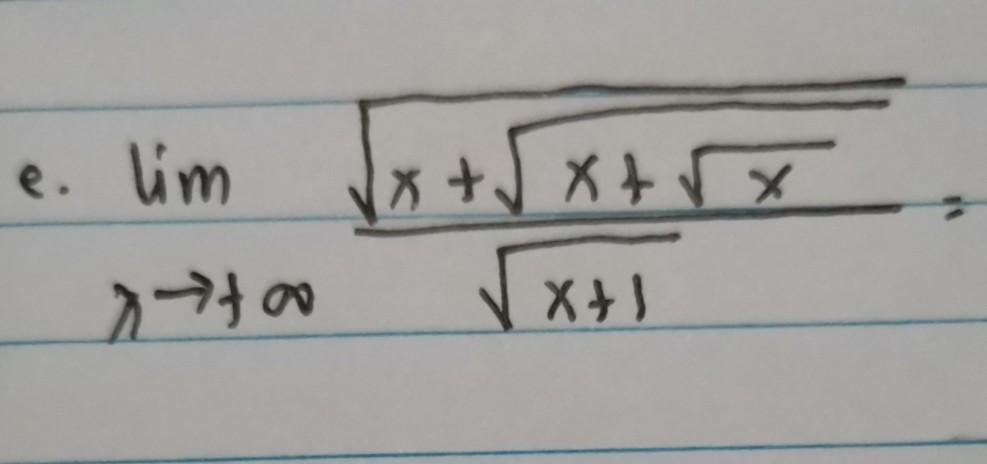 e. lim x→+∞ √(x+√(x+√x)) / √(x+1) =